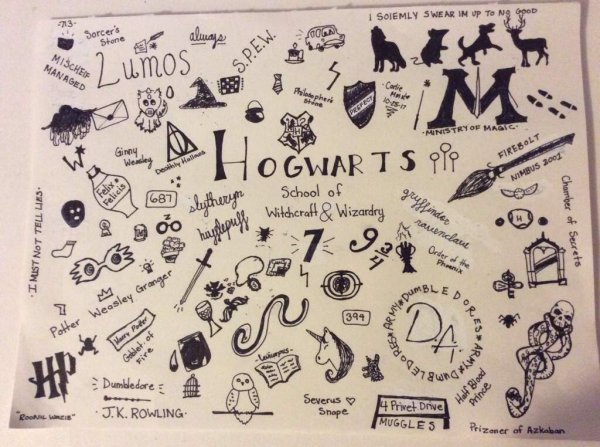 -713-
Sorcerer's
Stone
always
S.P.E.W.
I SOlEMLY SWEAR IM UP TO NO GOOD
MISCHEIF
MANAGED
Lumos
Philosopher's
Stone
PREFECT
10·05·17
M
·MINISTRY OF MAGIC·
W
Ginny
Weasley
Deathly Hallows
HOGWARTS
School of
Witchcraft & Wizardry
FIREBOLT
NIMBUS 2001
Felix
Felicis
687
slytheryn
hufflepuff
gryffindor
ravenclaw
Chamber of Secrets
·I MUST NOT TELL LIES·
7
9 3/4
Order of the
Phoenix
Potter Weasley Granger
394
DUMBLEDORES★ARMY★DUMBLEDORES★ARMY★
DA
Harry Potter
Goblet of
Fire
HP
"ROONIL WAZIB"
Dumbledore
·J.K. ROWLING·
Severus ♡
Snape
4 Privet Drive
MUGGLES
Half Blood
Prince
Prizoner of Azkaban